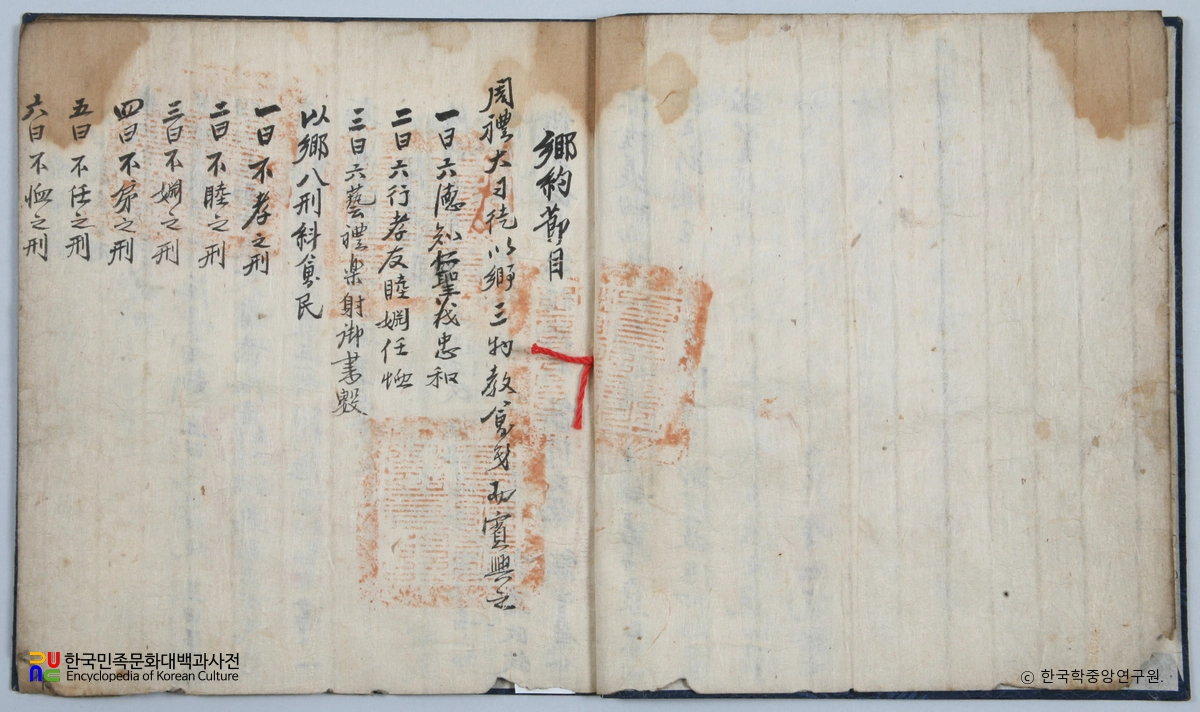 鄕約節目
周禮大司徒以鄕三物教萬民而賓興之
一曰六德知仁聖義忠和
二曰六行孝友睦婣任恤
三曰六藝禮楽射御書數
以鄕八刑糾萬民
一曰不孝之刑
二曰不睦之刑
三曰不婣之刑
四曰不弟之刑
五曰不任之刑
六曰不恤之刑
한국민족문화대백과사전
Encyclopedia of Korean Culture
ⓒ 한국학중앙연구원